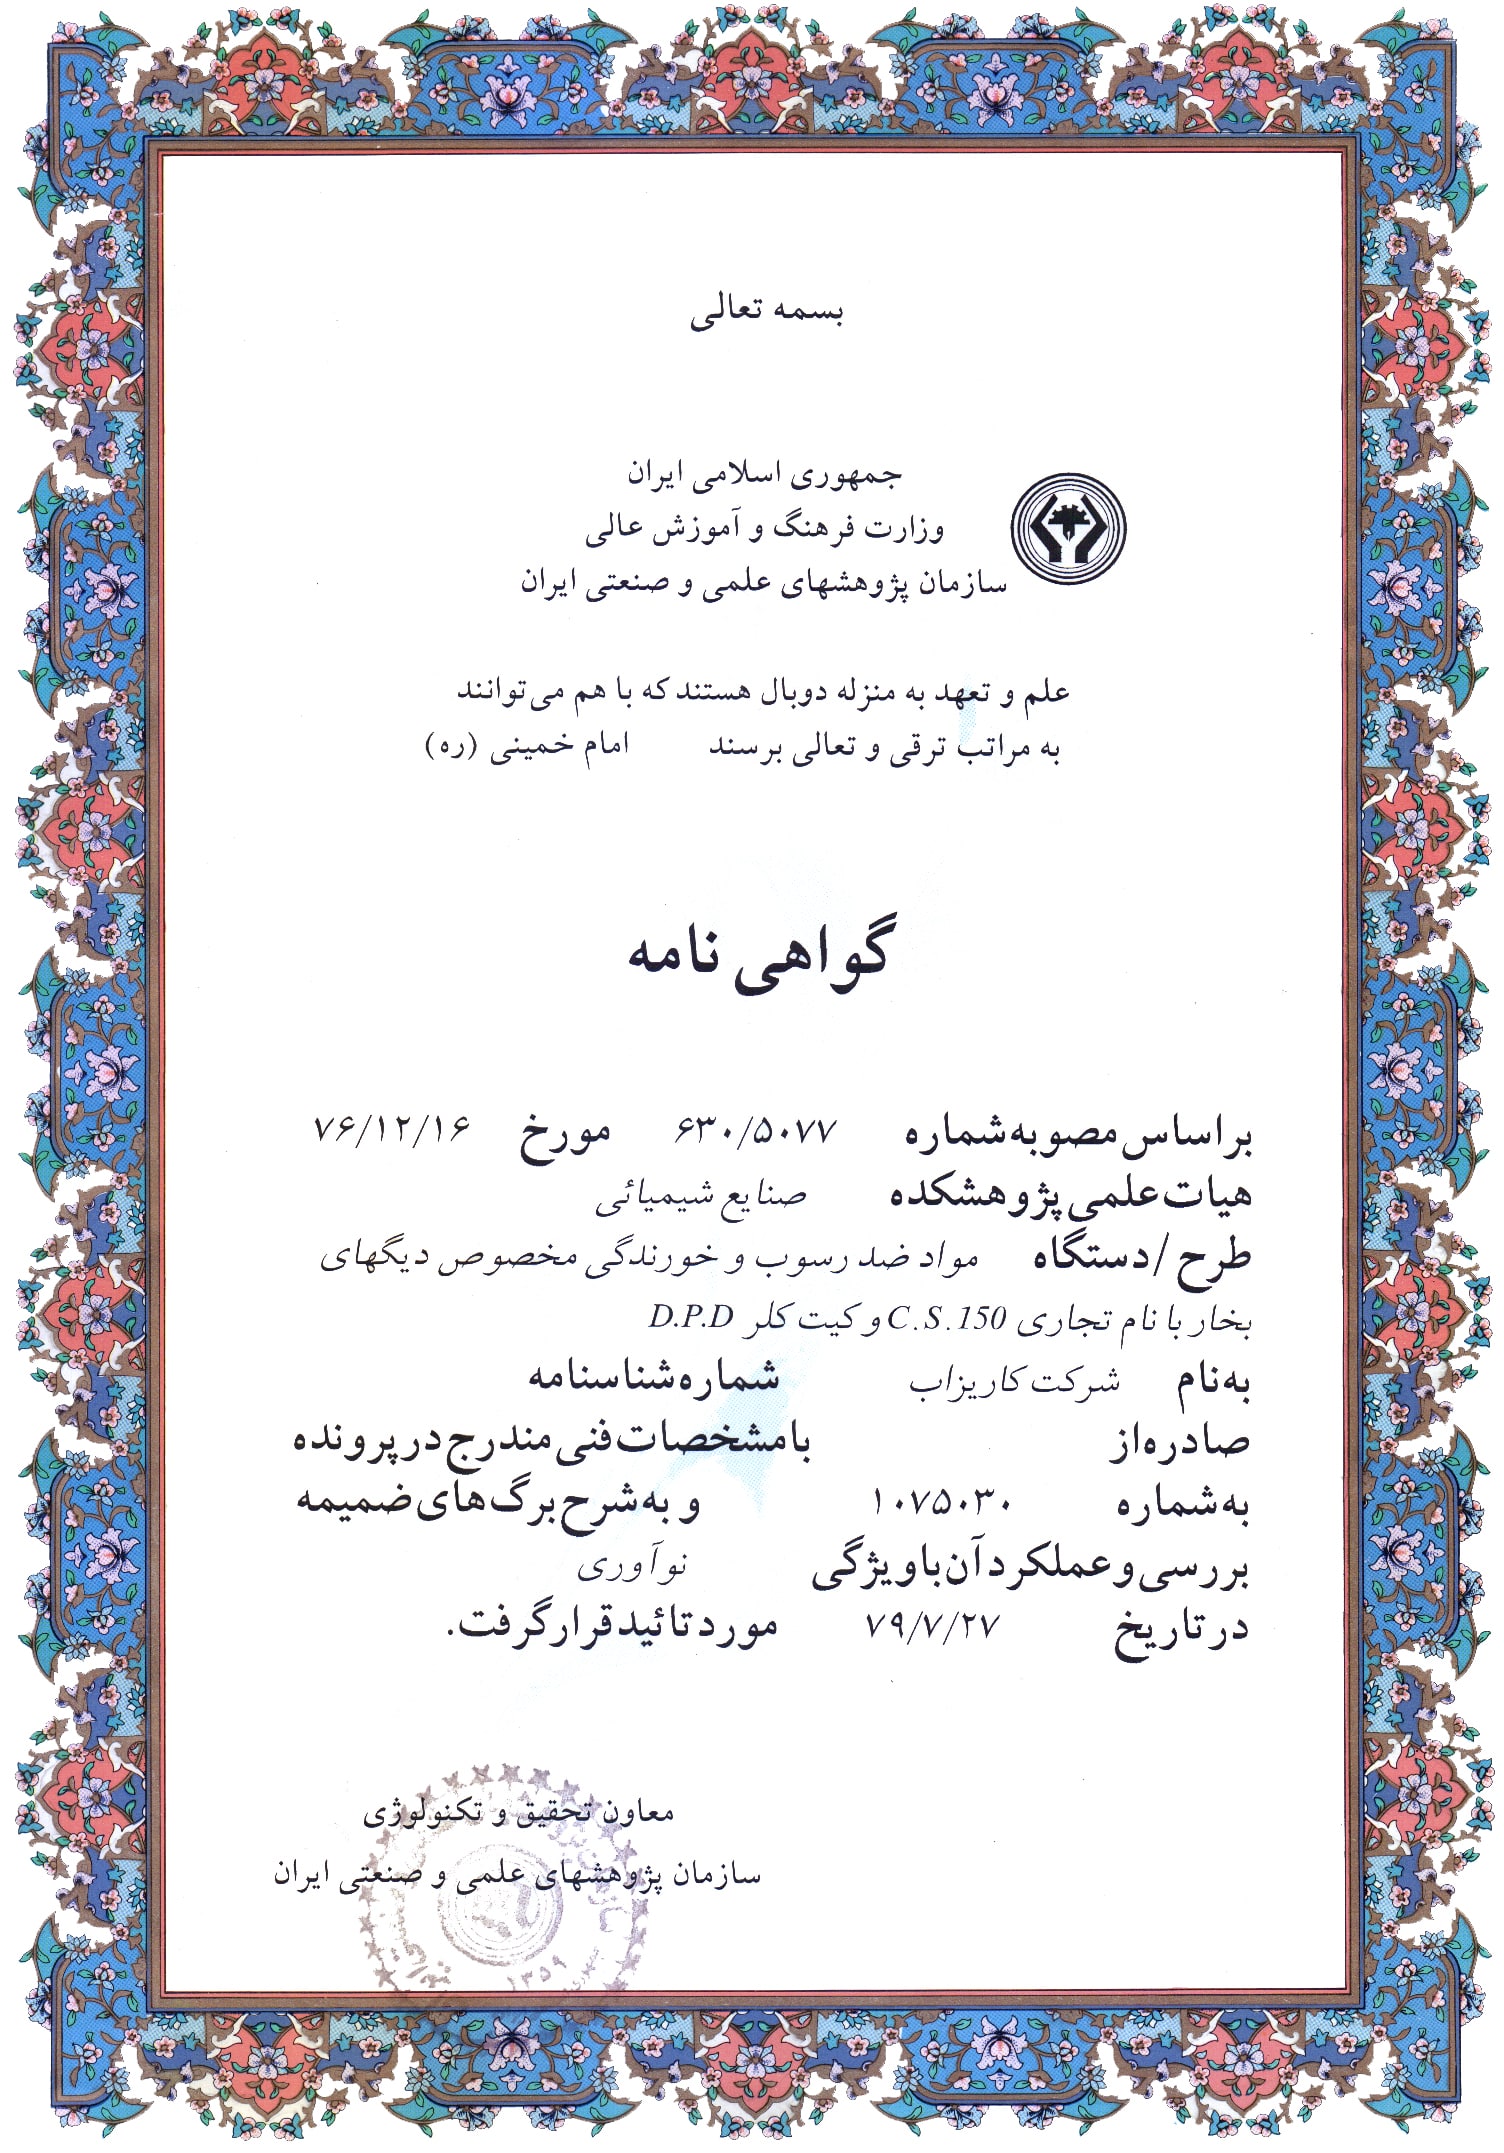 بسمه تعالی
جمهوری اسلامی ایران
وزارت فرهنگ و آموزش عالی
سازمان پژوهشهای علمی و صنعتی ایران
علم و تعهد به منزله دوبال هستند که با هم می‌توانند
به مراتب ترقی و تعالی برسند امام خمینی (ره)
گواهی نامه
براساس مصوبه شماره ۶۳۰/۵۰۷۷ مورخ ۷۶/۱۲/۱۶
هیات علمی پژوهشکده صنایع شیمیائی
طرح / دستگاه مواد ضد رسوب و خورندگی مخصوص دیگهای
بخار با نام تجاری C.S.150 و کیت کلر D.P.D
به نام شرکت کاریزاب شماره شناسنامه
صادره از با مشخصات فنی مندرج در پرونده
به شماره ۱۰۷۵۰۳۰ و به شرح برگ های ضمیمه
بررسی و عملکرد آن با ویژگی نوآوری
در تاریخ ۷۹/۷/۲۷ مورد تائید قرار گرفت.
معاون تحقیق و تکنولوژی
سازمان پژوهشهای علمی و صنعتی ایران
۱۳۵۹